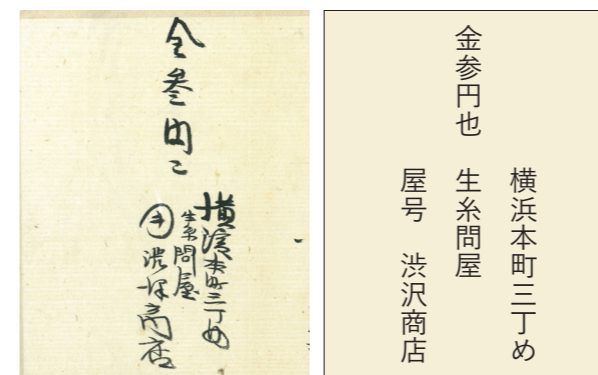 金参円也
横濱本町三丁め
生糸問屋
渋沢商店
金参円也
横浜本町三丁め
生糸問屋
屋号　渋沢商店